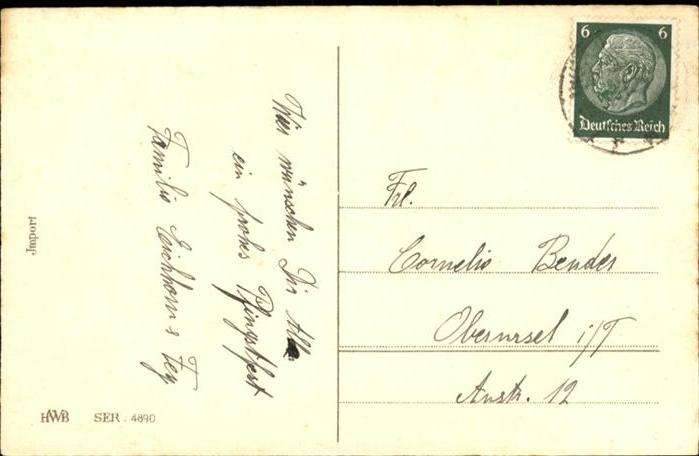 Wir wünschen Dir Allen
ein frohes Pfingstfest
Familie Eichhorn & Fey
Frl.
Cornelia Bender
Oberursel i/T
Austr. 12
6 6
Deutsches Reich
Import
HWB SER. 4890